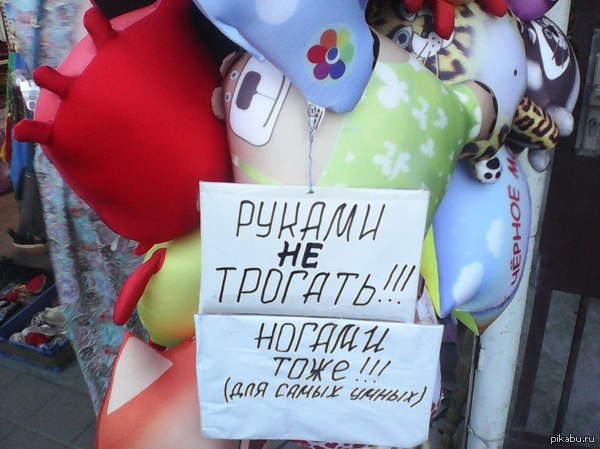 РУКАМИ
НЕ
ТРОГАТЬ!!!
НОГАМИ
ТОЖЕ!!!
(ДЛЯ САМЫХ УМНЫХ)
ЧЁРНОЕ
pikabu.ru